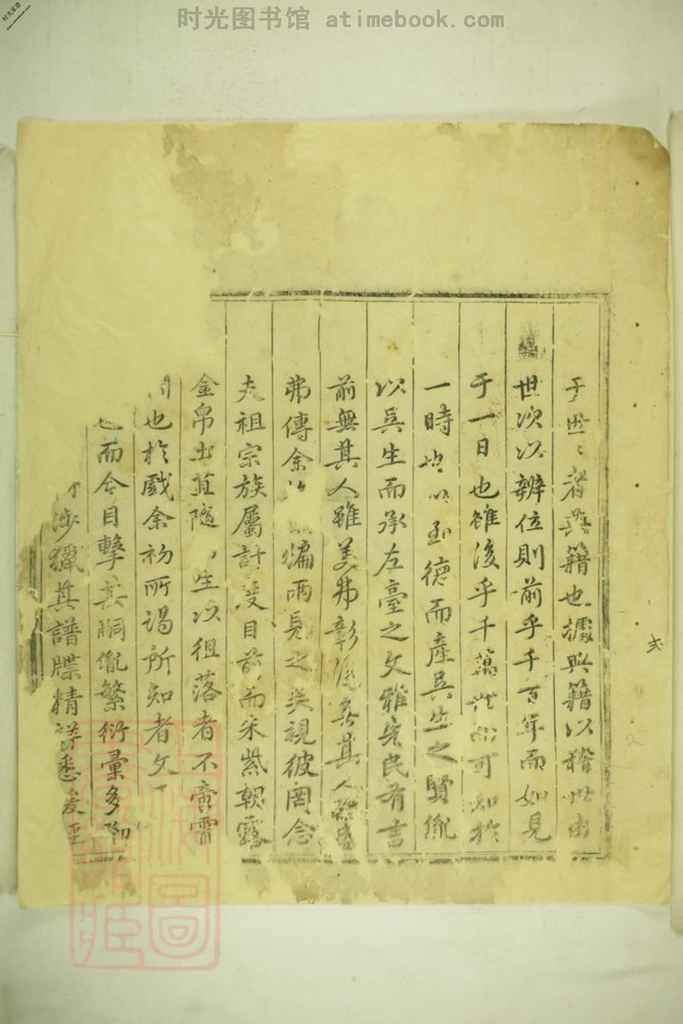 时光图书馆 atimebook.com
于世〻者典籍也據典籍以稽世由
世次以辨位則前乎千百年而如見
于一日也雖後乎千萬世而可知於
一時也以至德而產吳生之賢胤
以吳生而承左臺之文雅宋民有言
前無其人雖美弗彰後無其人雖盛
弗傳余 編而見之矣視彼罔念
夫祖宗族屬計漫目前而采蒸朝露
金帛土苴隨 生以徂落者不啻霄
也於戲余初所謁所知者文
也而今目擊其嗣胤繁衍彙多
涉獵其譜牒精詳悉爰至